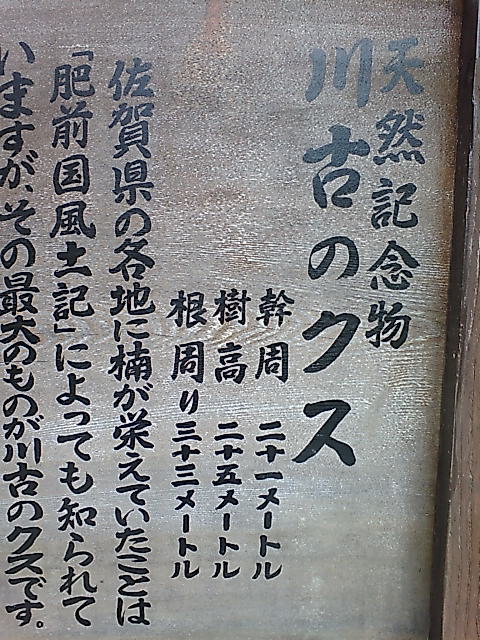 天然記念物
川古のクス
幹周 二十一メートル
樹高 二十五メートル
根周り 三十三メートル
佐賀県の各地に楠が栄えていたことは
「肥前国風土記」によっても知られて
いますが、その最大のものが川古のクスです。